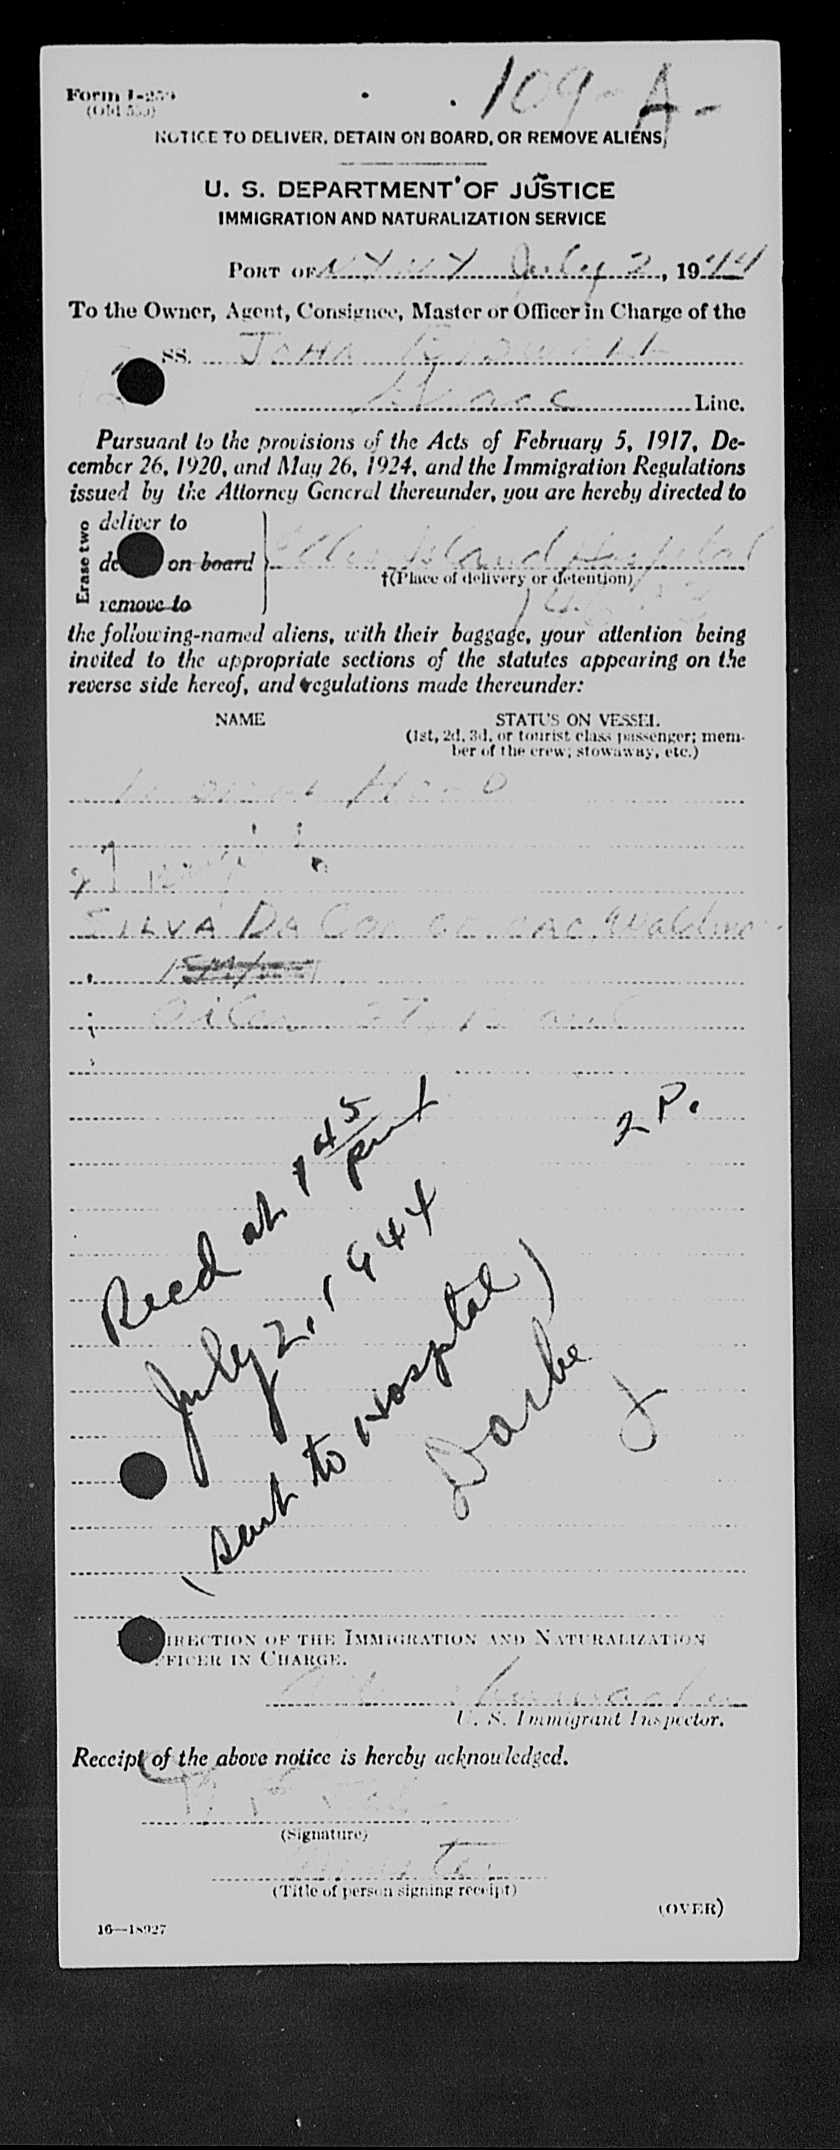 109-A-
Form I-259
(Old 555)
NOTICE TO DELIVER, DETAIN ON BOARD, OR REMOVE ALIENS
U. S. DEPARTMENT OF JUSTICE
IMMIGRATION AND NATURALIZATION SERVICE
PORT OF N Y N Y July 2, 1944
To the Owner, Agent, Consignee, Master or Officer in Charge of the
SS. John
Line.
Pursuant to the provisions of the Acts of February 5, 1917, De-
cember 26, 1920, and May 26, 1924, and the Immigration Regulations
issued by the Attorney General thereunder, you are hereby directed to
Erase two
deliver to
on board Ellis Island Hospital
†(Place of delivery or detention)
remove to
the following-named aliens, with their baggage, your attention being
invited to the appropriate sections of the statutes appearing on the
reverse side hereof, and regulations made thereunder:
NAME STATUS ON VESSEL
(1st, 2d, 3d, or tourist class passenger; mem-
ber of the crew; stowaway, etc.)
SILVA Da
Oiler 27
2 P.
Recd at 1 45 pm
July 2, 1944
(sent to Hospital)
Darbe
DIRECTION OF THE IMMIGRATION AND NATURALIZATION
OFFICER IN CHARGE.
U. S. Immigrant Inspector.
Receipt of the above notice is hereby acknowledged.
(Signature)
Master
(Title of person signing receipt)
(OVER)
16—18927